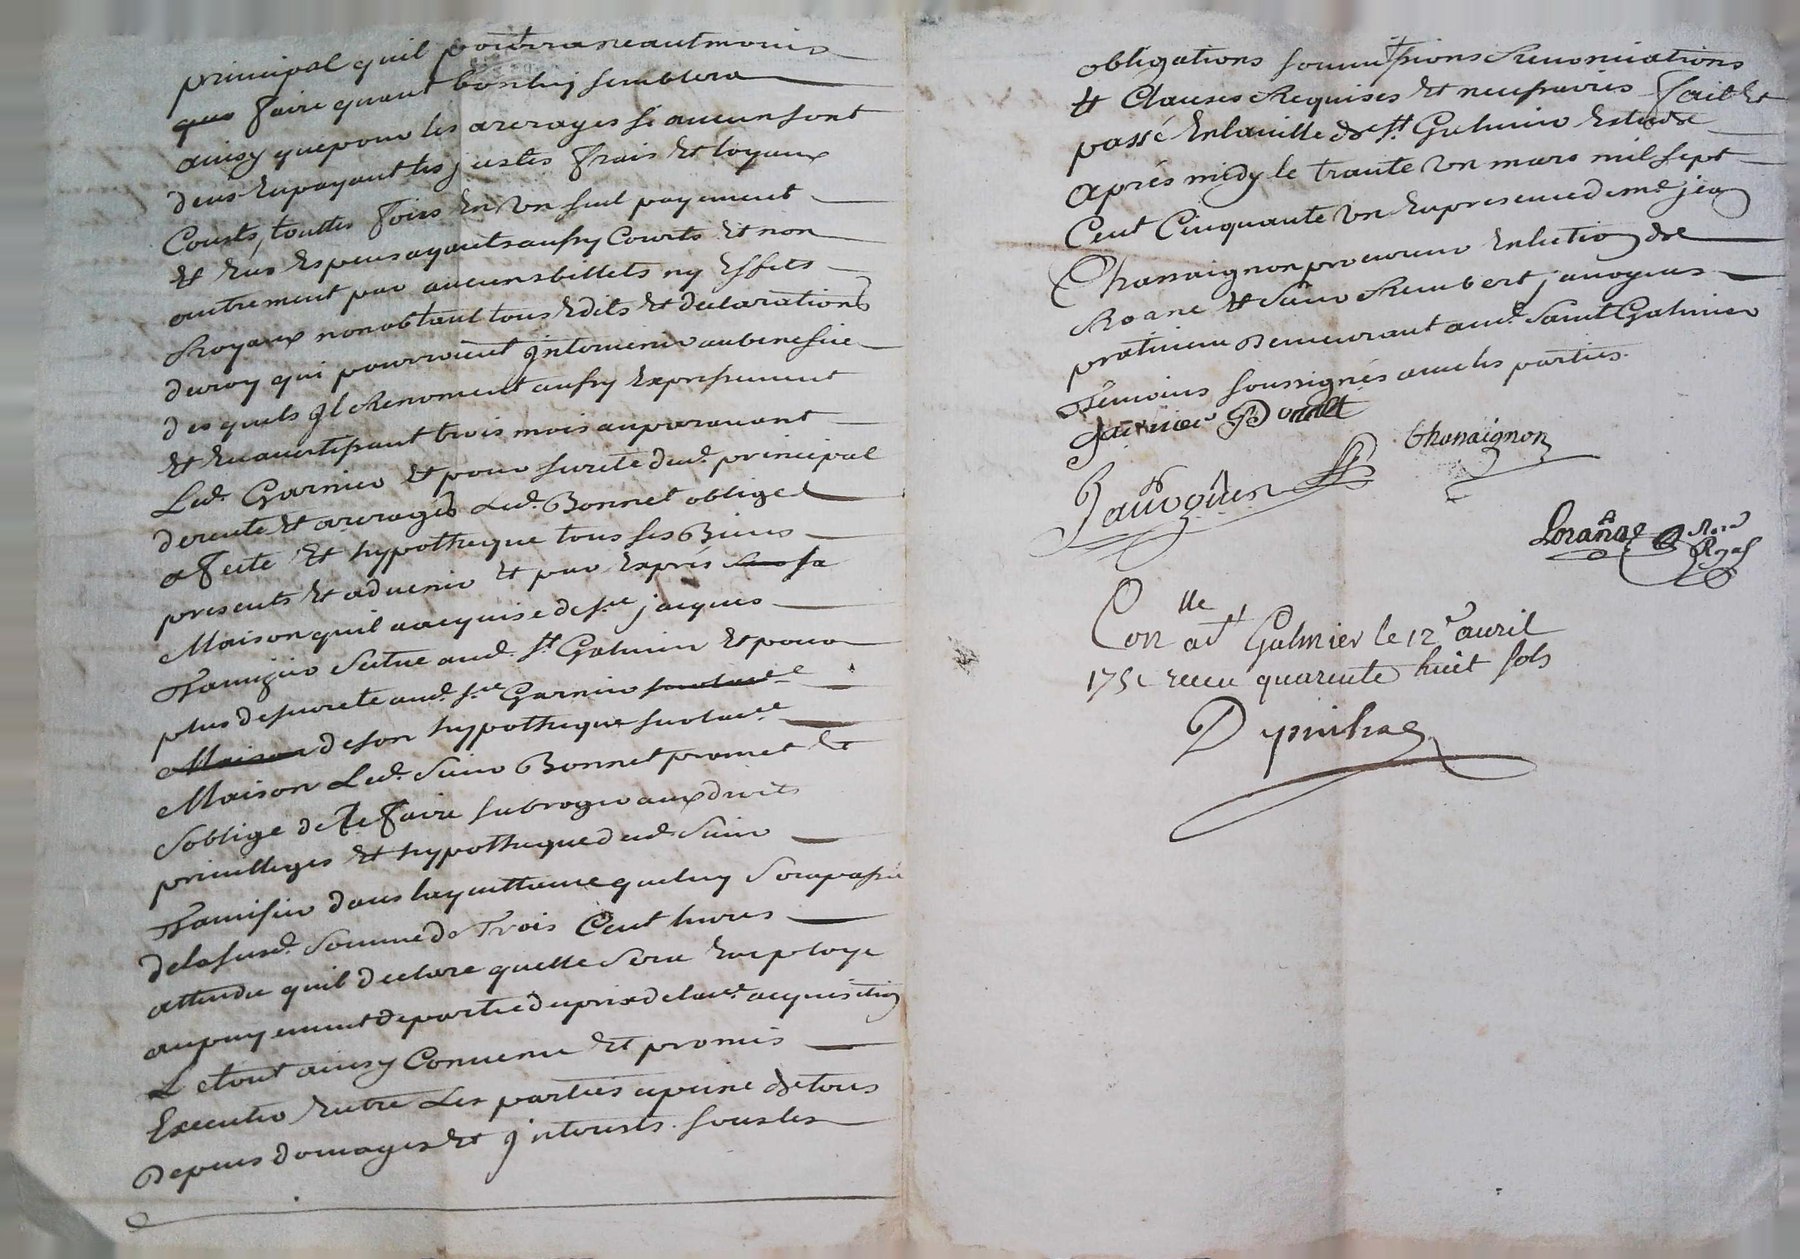 principal quil pourra neautmoins
que faire quant bon luy semblera
ainsy que pour les arerages si aucun sont
deus en payant les justes frais et loyaux
Couts, touttes fois en un seul payement
et en espesses ayants aussy Courts et non
autrement par aucuns billets ny effets
Royaux nonobtant tous edits et declarations
du roy qui pourroient jntervenir au benefice
desquels jl Renoncent aussy expressement
et en avertissant trois mois auparavant
Led. Garnier et pour surete dud. principal
de rente et arerages Led. Bonnet oblige
afecte et hypotheque tous ses Biens
presents et advenir et par exprés sa
Maison quil a acquise de sr. jacques
Tamizier scitue aud. St Galmier et pour
plus de surete aud. sr. Garnier
Maison de son hypotheque sur lad.
Maison Led. Sieur Bonnet promet et
soblige de le faire subroger aux droits
privilleges et hypotheque dud. Sieur
Tamisier dans la quittance quil luy
de la susd. somme de Trois Cent livres
attendu quil declare quelle sera employe
au payement de partie du prix de lad. acquisition
Le tout ainsy Convenu et promis
Executer entre Les parties a peine de tous
Depens domages et jnterests. sous les
obligations soumissions Renonciations
et Clauses Requises et necessaires fait et
passé en la ville de St. Galmier Estude
aprés midy le trante un mars mil sept
Cent Cinquante un en presence de me. jean
Chanaignon procureur en lection de
Roane et Sieur Rembert javogues
praticien Demeurant aud. Saint Galmier
Temoins soussignés avec les parties.
garnier Bonnet
Chanaignon
Javogues
Royal
Con lle a St Galmier le 12e avril
1751 receu quarente huit sols